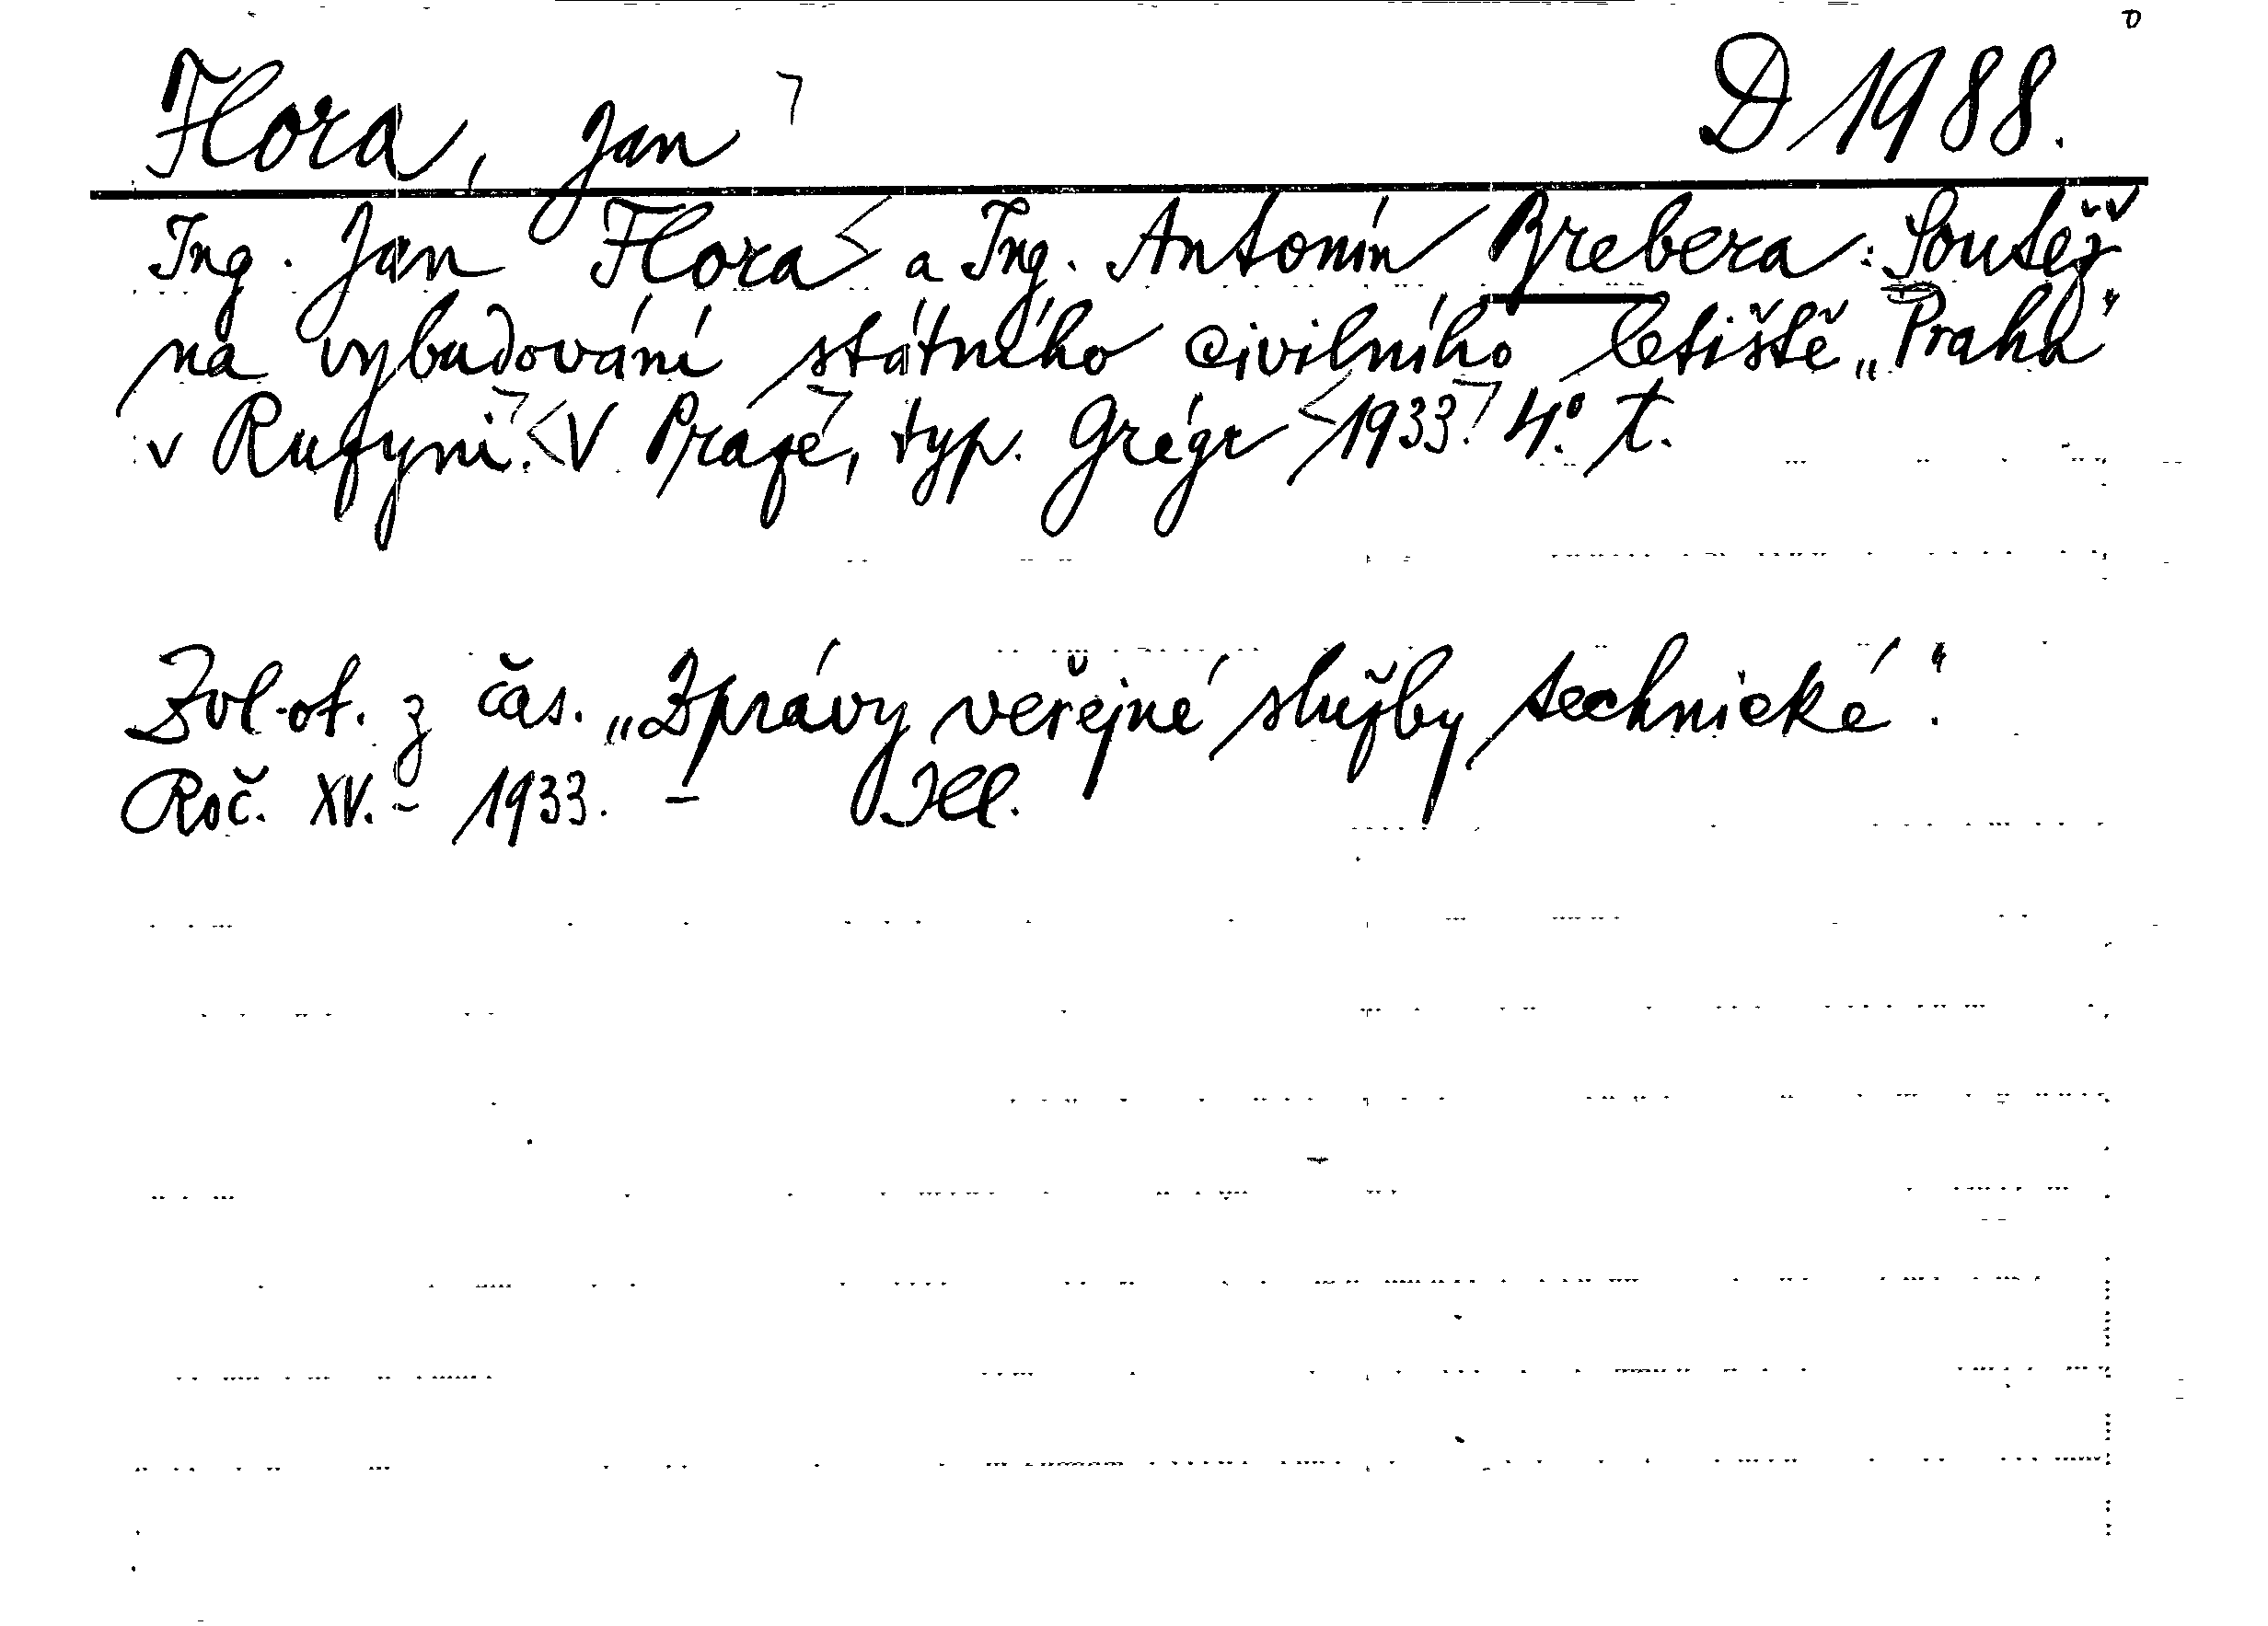 Flora, Jan D 1988.
Ing. Jan Flora a Ing. Antonín Brebera: Soutěž
na vybudování státního civilního letiště „Praha“
v Ruzyni. V Praze, typ. Grégr 1933. 4°. t.
Zvl. ot. z čas. „Zprávy veřejné služby technické“.
Roč. XV. - 1933. - Ill.